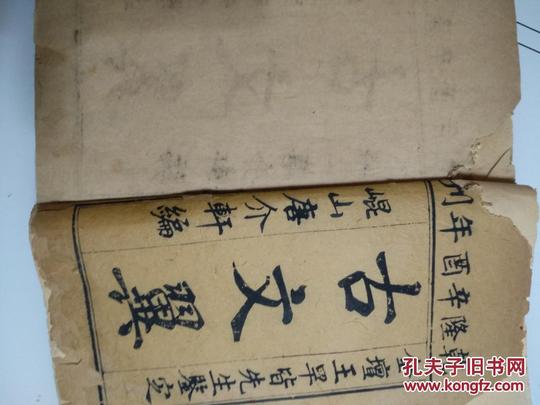 乾隆辛酉年刊
金壇王罕皆先生鑒定
古文翼
崐山唐介軒編
孔夫子旧书网
www.kongfz.com